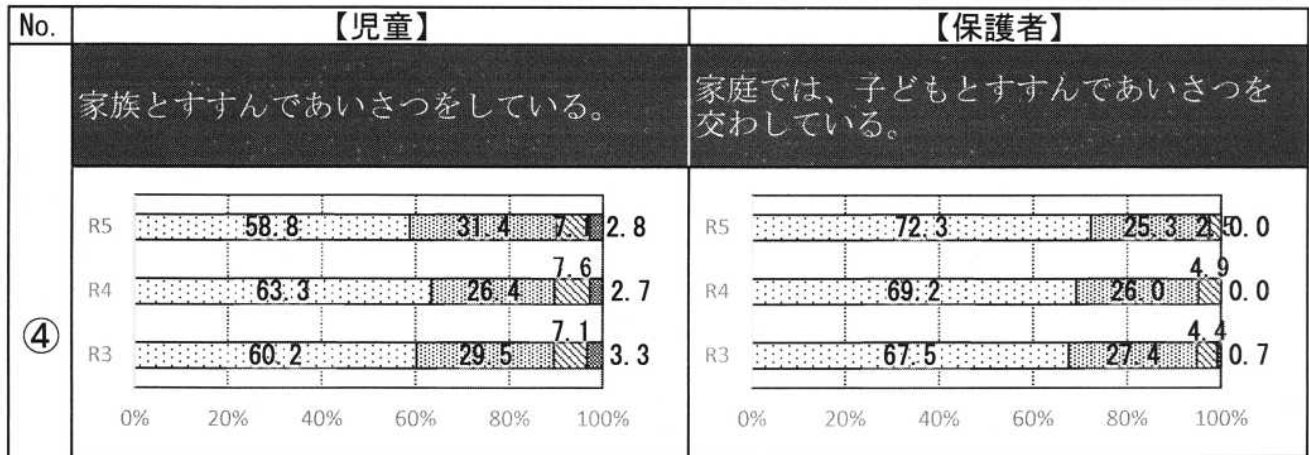 No. 【児童】 【保護者】
④
家族とすすんであいさつをしている。
家庭では、子どもとすすんであいさつを
交わしている。
R5 58.8 31.4 2.8
7.6
R4 63.3 26.4 2.7
7.1
R3 60.2 29.5 3.3
0% 20% 40% 60% 80% 100%
R5 72.3 25.3 2.5 0.0
4.9
R4 69.2 26.0 0.0
4.4
R3 67.5 27.4 0.7
0% 20% 40% 60% 80% 100%